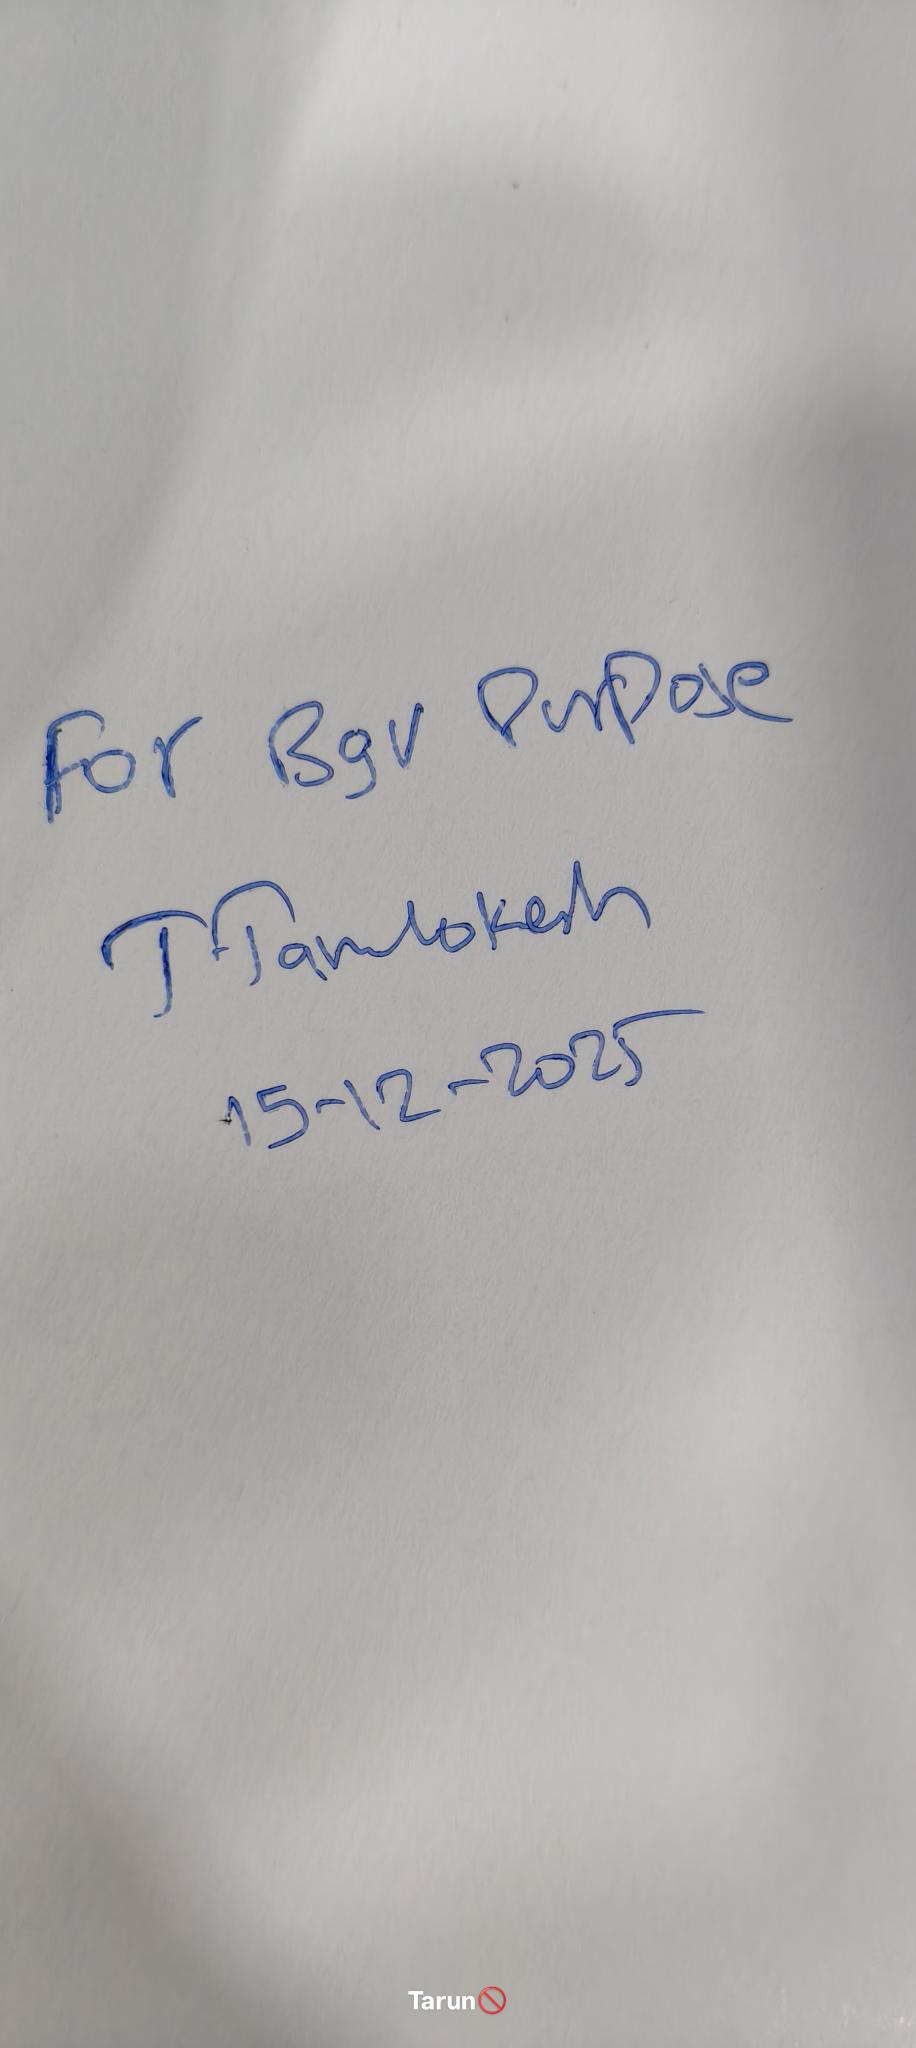 For Bgv Purpose
T Tarunlokesh
15-12-2025
Tarun🚫